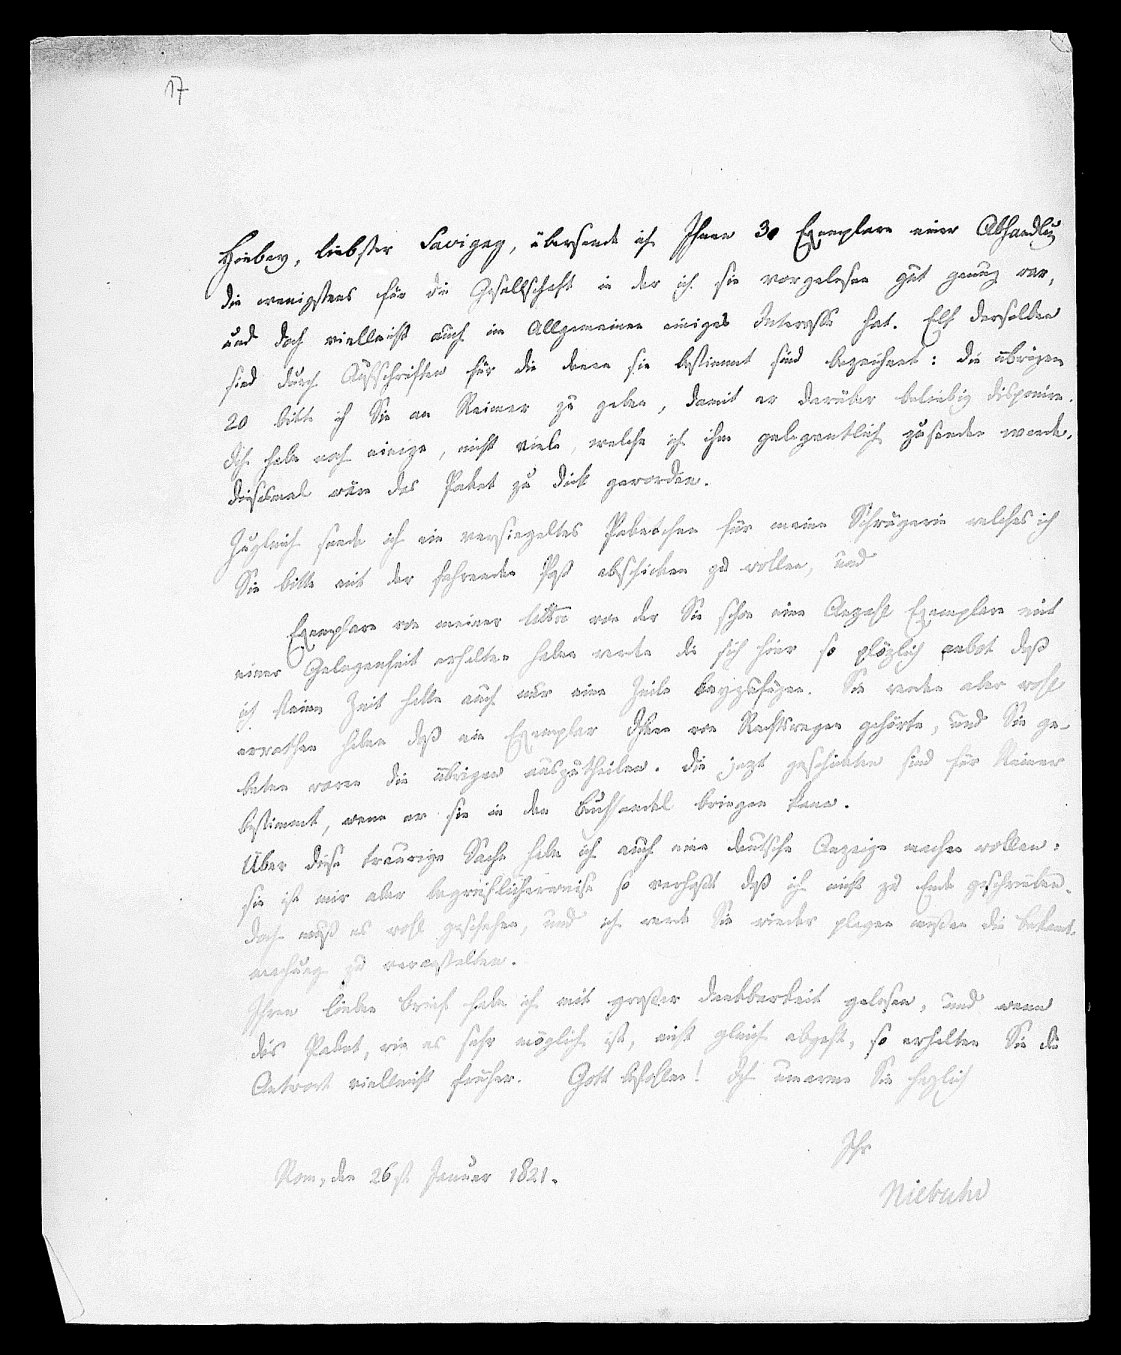 17
Hiebey, liebster Savigny, übersende ich Ihnen 30 Exemplare einer Abhandlung
die wenigstens für die Gesellschaft in der ich sie vorgelesen gut genug war,
und doch vielleicht auch im Allgemeinen einiges Interesse hat. Elf derselben
sind durch Aufschriften für die denen sie bestimmt sind bezeichnet: die übrigen
20 bitte ich Sie an Reimer zu geben, damit er darüber beliebig disponire.
Ich habe noch einige, nicht viele, welche ich ihm gelegentlich zusenden werde.
Diesesmal wäre das Paket zu dick geworden.
Zugleich sende ich ein versiegeltes Paketchen für meine Schwägerin welches ich
Sie bitte mit der fahrenden Post abschicken zu wollen, und
Exemplare von meiner von der Sie schon eine Anzahl Exemplare mit
einer Gelegenheit erhalten haben werden die sich hier so plözlich anbot daß
ich keine Zeit hatte auch nur eine Zeile beyzufügen. Sie werden aber wohl
errathen haben daß ein Exemplar Ihnen von Rechtswegen gehörte, und Sie ge-
beten waren die übrigen auszutheilen. Die jezt geschickten sind für Reimer
bestimmt, wenn er sie in den Buchhandel bringen kann.
Über diese traurige Sache habe ich auch eine deutsche Anzeige machen wollen:
sie ist mir aber begreiflicherweise so verhaßt daß ich nicht zu Ende geschrieben.
Doch muß es wohl geschehen, und ich werde Sie wieder plagen müssen die Bekannt-
machung zu veranstalten.
Ihren lieben Brief habe ich mit großer Dankbarkeit gelesen, und wenn
das Paket, wie es sehr möglich ist, nicht gleich abgeht, so erhalten Sie die
Antwort vielleicht früher. Gott befohlen! Ich umarme Sie herzlich
Ihr
Rom, den 26st Januar 1821.
Niebuhr